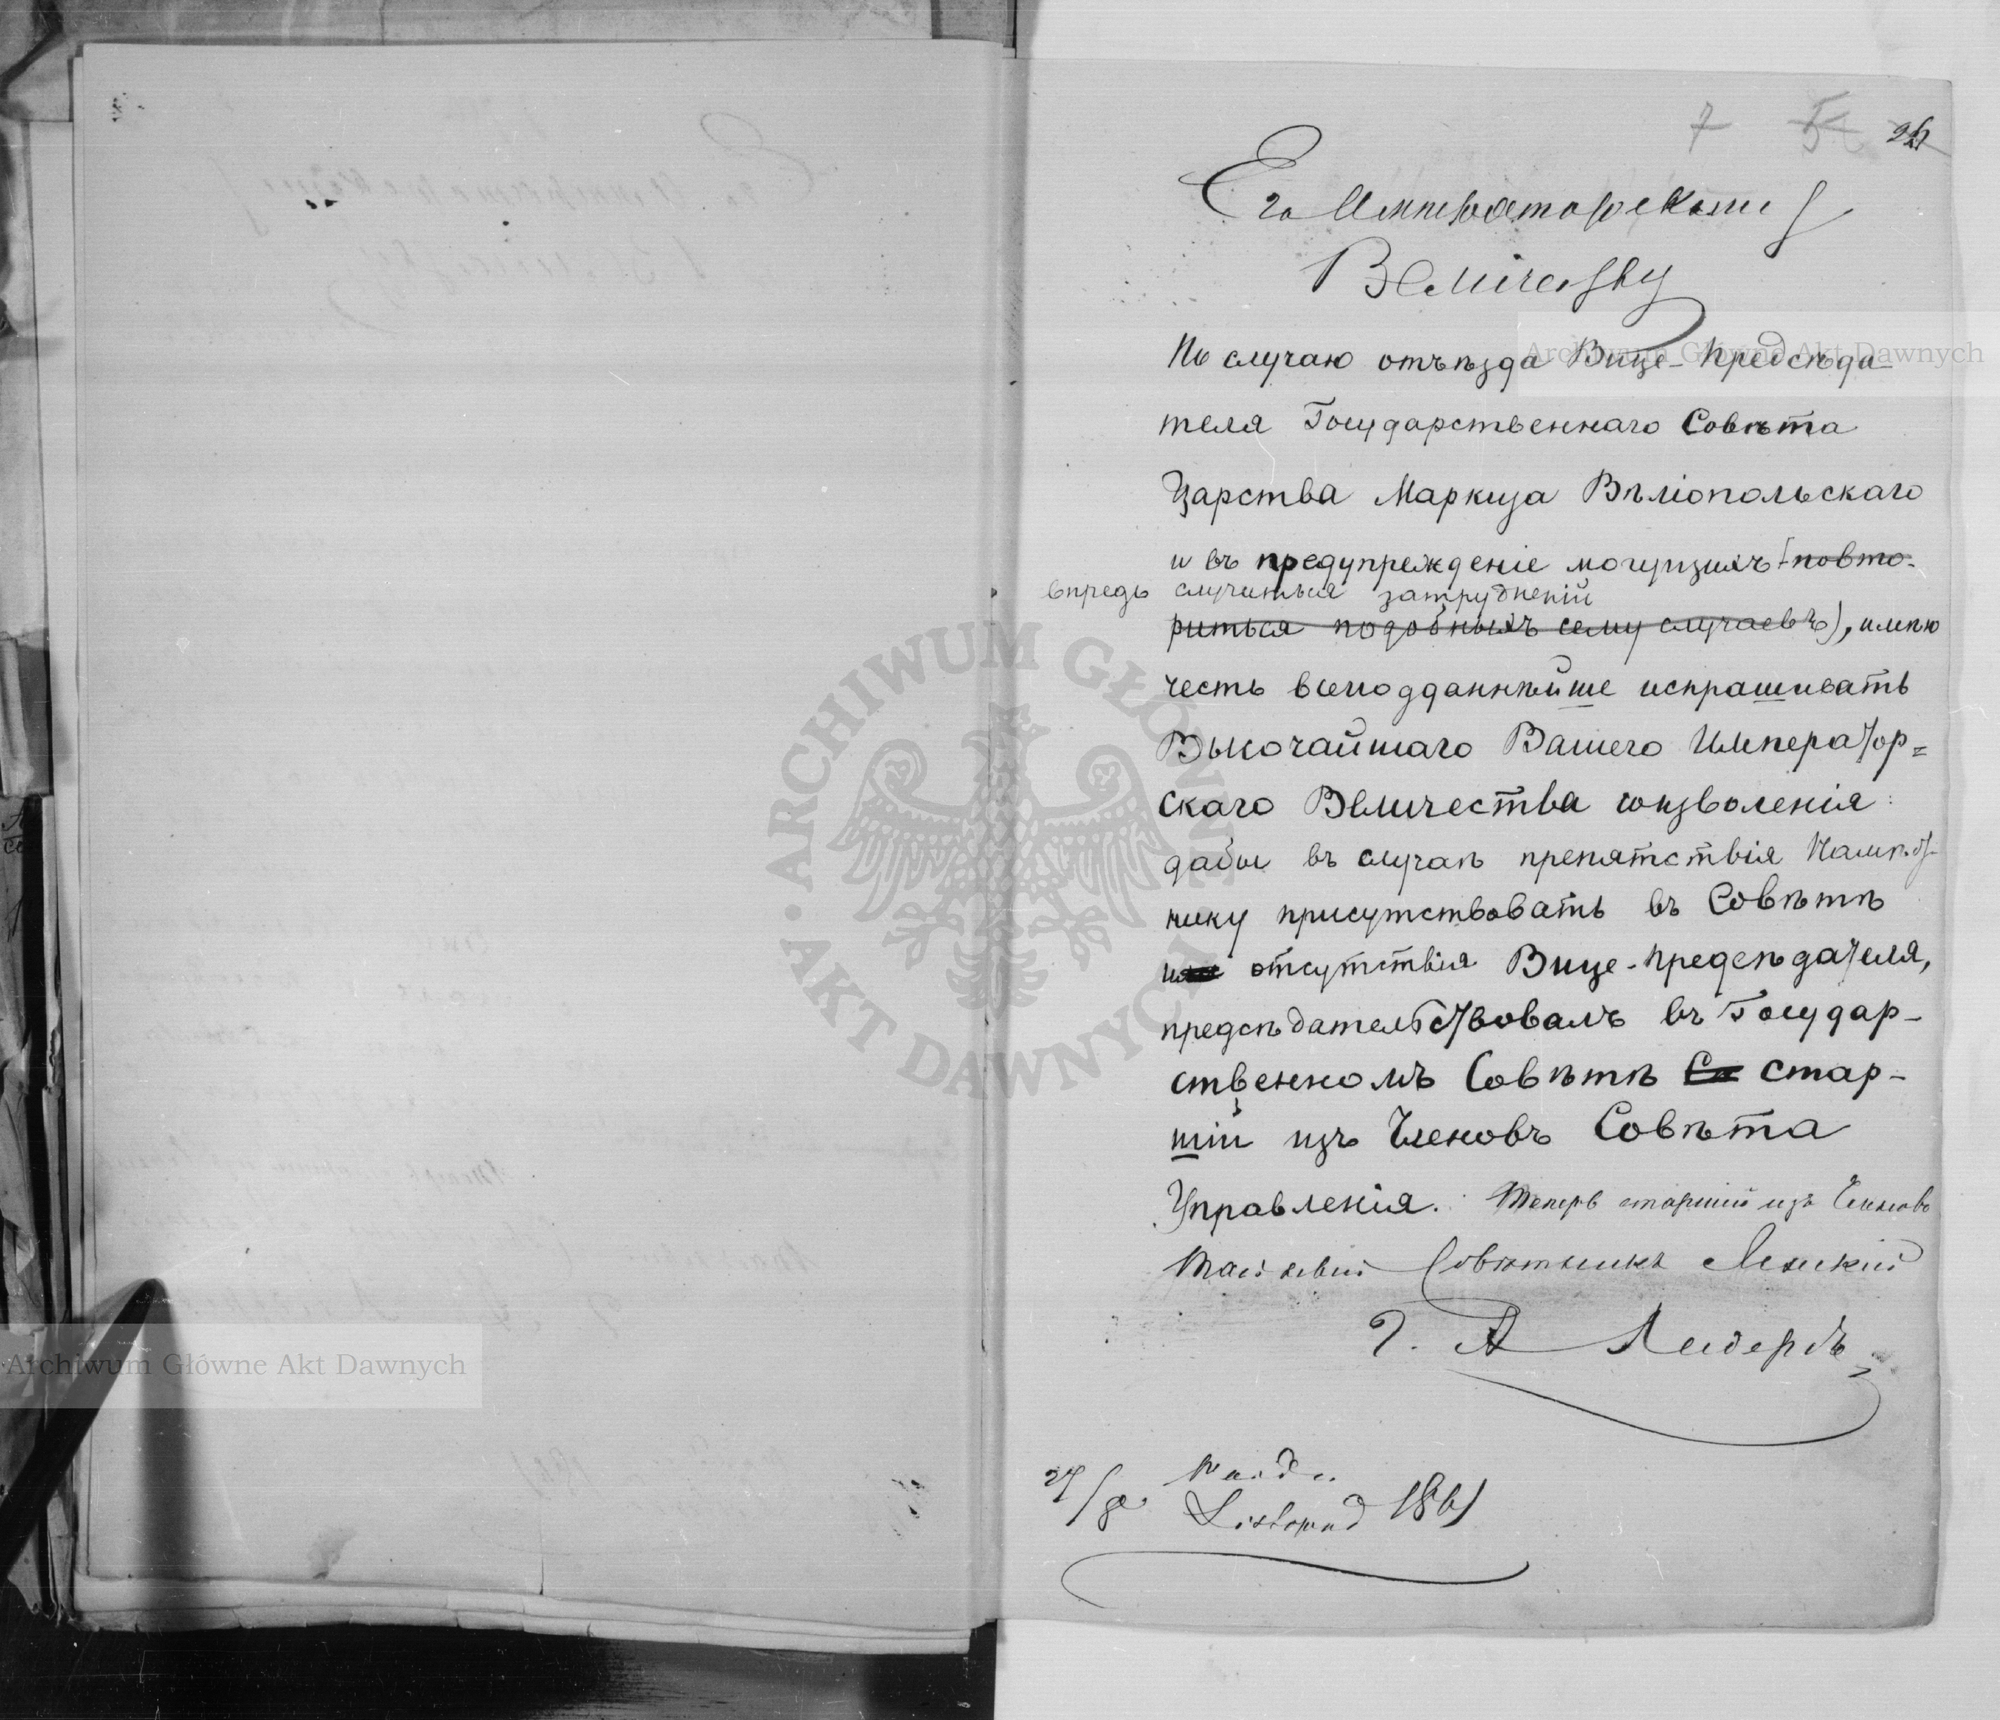 7
Его Императорскому
Величеству
По случаю отъѣзда Вице-Предсѣда-
теля Государственнаго Совѣта
Царства Маркиза Вѣліопольскаго
и въ предупрежденіе могущихъ (повто-
впредь случиться затрудненій
риться подобныхъ сему случаевъ), имѣю
честь всеподданнѣйше испрашивать
Высочайшаго Вашего Император=
скаго Величества соизволенія
дабы въ случаѣ препятствія Намѣст-
нику присутствовать въ Совѣтѣ
отсутствія Вице-Предсѣдателя,
предсѣдательствовалъ въ Государ-
ственномъ Совѣтѣ стар-
шій изъ Членовъ Совѣта
Управленія. Теперь старшій изъ Членовъ
Тайный Совѣтникъ Ленскій
Г. А Лидерсъ
27/8 Listopad 1861
Archiwum Główne Akt Dawnych
Archiwum Główne Akt Dawnych
ARCHIWUM GŁÓWNE AKT DAWNYCH